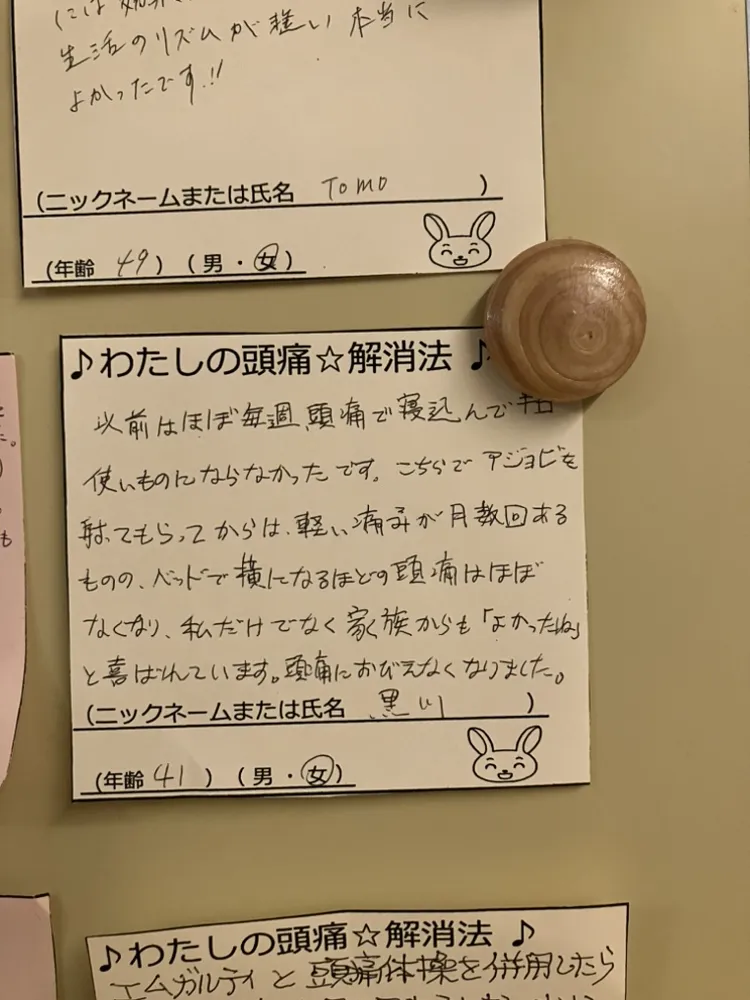 には
生活のリズムが整い 本当に
よかったです!!
(ニックネームまたは氏名 TOMO )
(年齢 49 ) ( 男 ・ 女 )
♪わたしの頭痛☆解消法 ♪
以前はほぼ毎週、頭痛で寝込んで
使いものにならなかったです。こちらで アジョビを
射ってもらってからは、軽い痛みが月数回ある
ものの、ベッドで横になるほどの頭痛はほぼ
なくなり、私だけでなく家族からも「よかったね」
と喜ばれています。頭痛におびえなくなりました。
(ニックネームまたは氏名 黒川 )
(年齢 41 ) ( 男 ・ 女 )
♪わたしの頭痛☆解消法 ♪
エムガルティと頭痛体操を併用したら